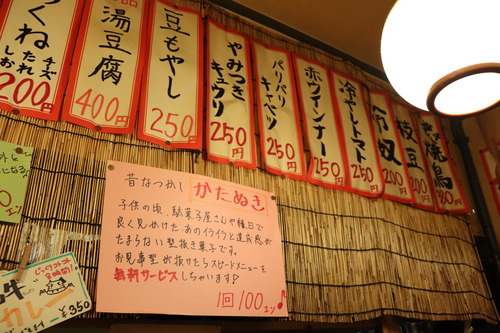 つくね
しお たれ チーズ
200円
湯豆腐
400円
豆もやし
250円
やみつき
キュウリ
250円
パリパリ
キャベツ
250円
赤ウィンナー
250円
冷やしトマト
250円
冷奴
200円
枝豆
200円
焼鳥
80円
昔なつかし かたぬき
子供の頃、駄菓子屋さんや縁日で
良く見かけた、あのイライラと達成感が
たまらない型抜き菓子です。
お見事型が抜けたらスピードメニューを
無料サービスしちゃいます♡
1回 100エン♪
カレー
¥350